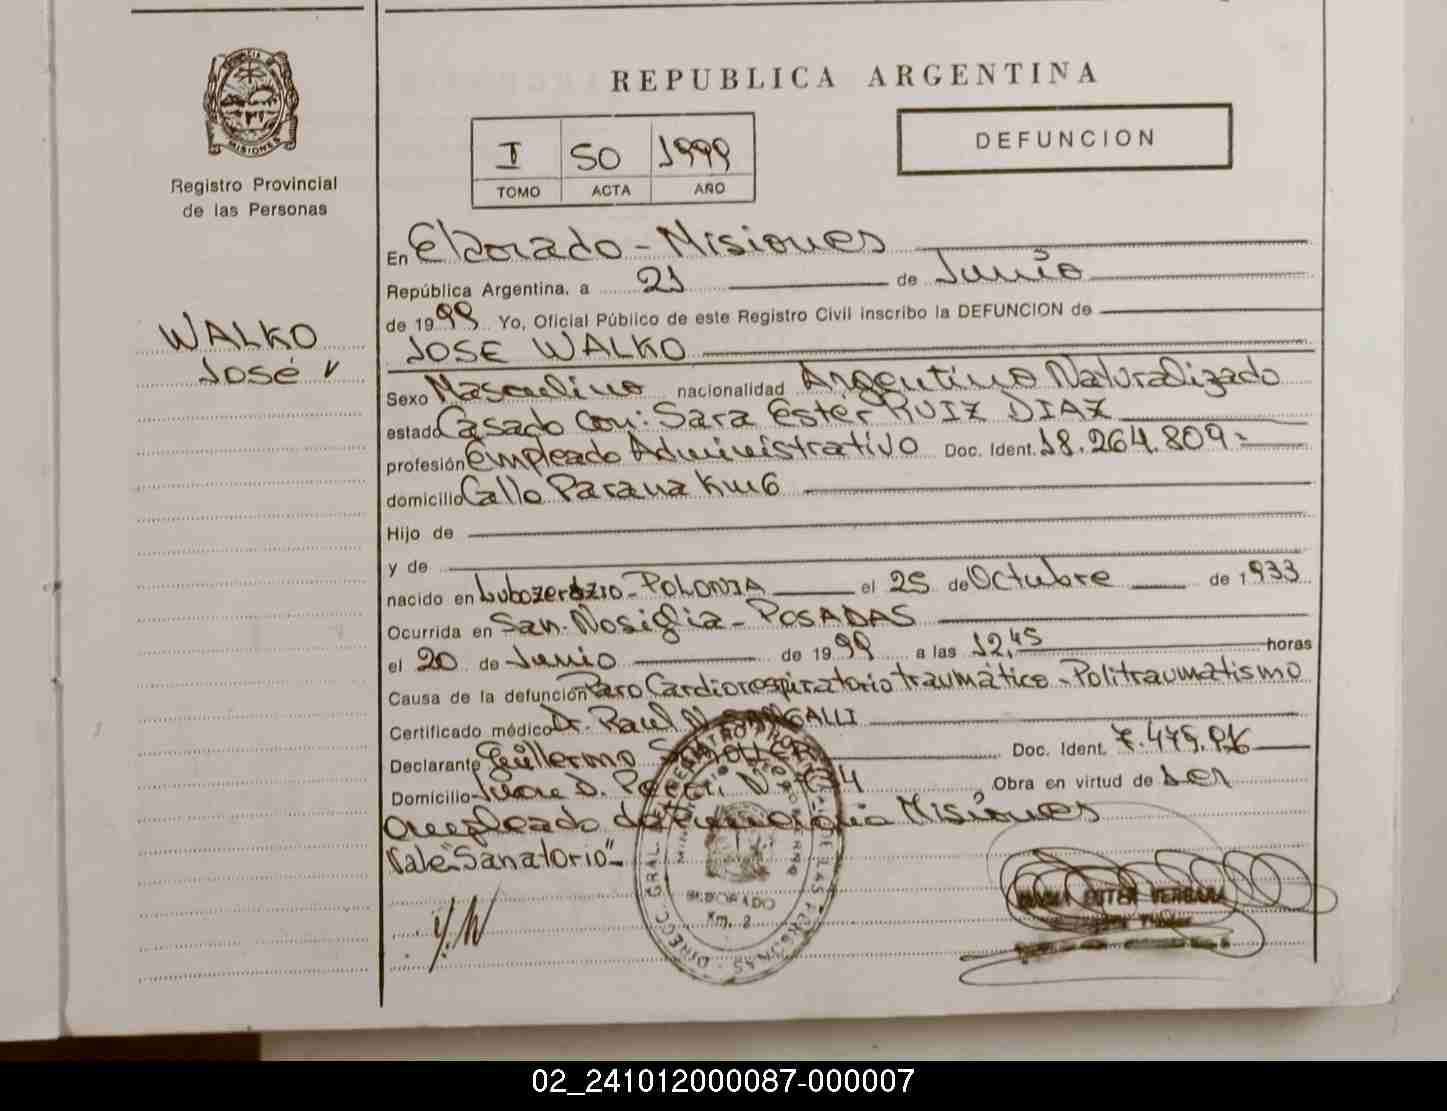 REPUBLICA ARGENTINA
DEFUNCION
I 50 1999
TOMO ACTA AÑO
MISIONES
Registro Provincial
de las Personas
WALKO
José
En Eldorado - Misiones
República Argentina, a 21 de Junio
de 1999 Yo, Oficial Público de este Registro Civil inscribo la DEFUNCION de
JOSE WALKO
Sexo Masculino nacionalidad Argentino Naturalizado
estado Casado con: Sara Ester RUIZ DIAZ
profesión Empleado Administrativo Doc. Ident. 18.264.809
domicilio Calle Parana Km 6
Hijo de
y de
nacido en POLONIA el 25 de Octubre de 1933
Ocurrida en San. Nosiglia - POSADAS
el 20 de Junio de 1999 a las 12,45 horas
Causa de la defunción Paro Cardiorespiratorio traumático - Politraumatismo
Certificado médico Dr. Raul N.
Declarante Guillermo Doc. Ident.
Domicilio Juan D. Obra en virtud de ser
empleado de Misiones
Vale "Sanatorio"
ELDORADO
Km. 2
02_241012000087-000007